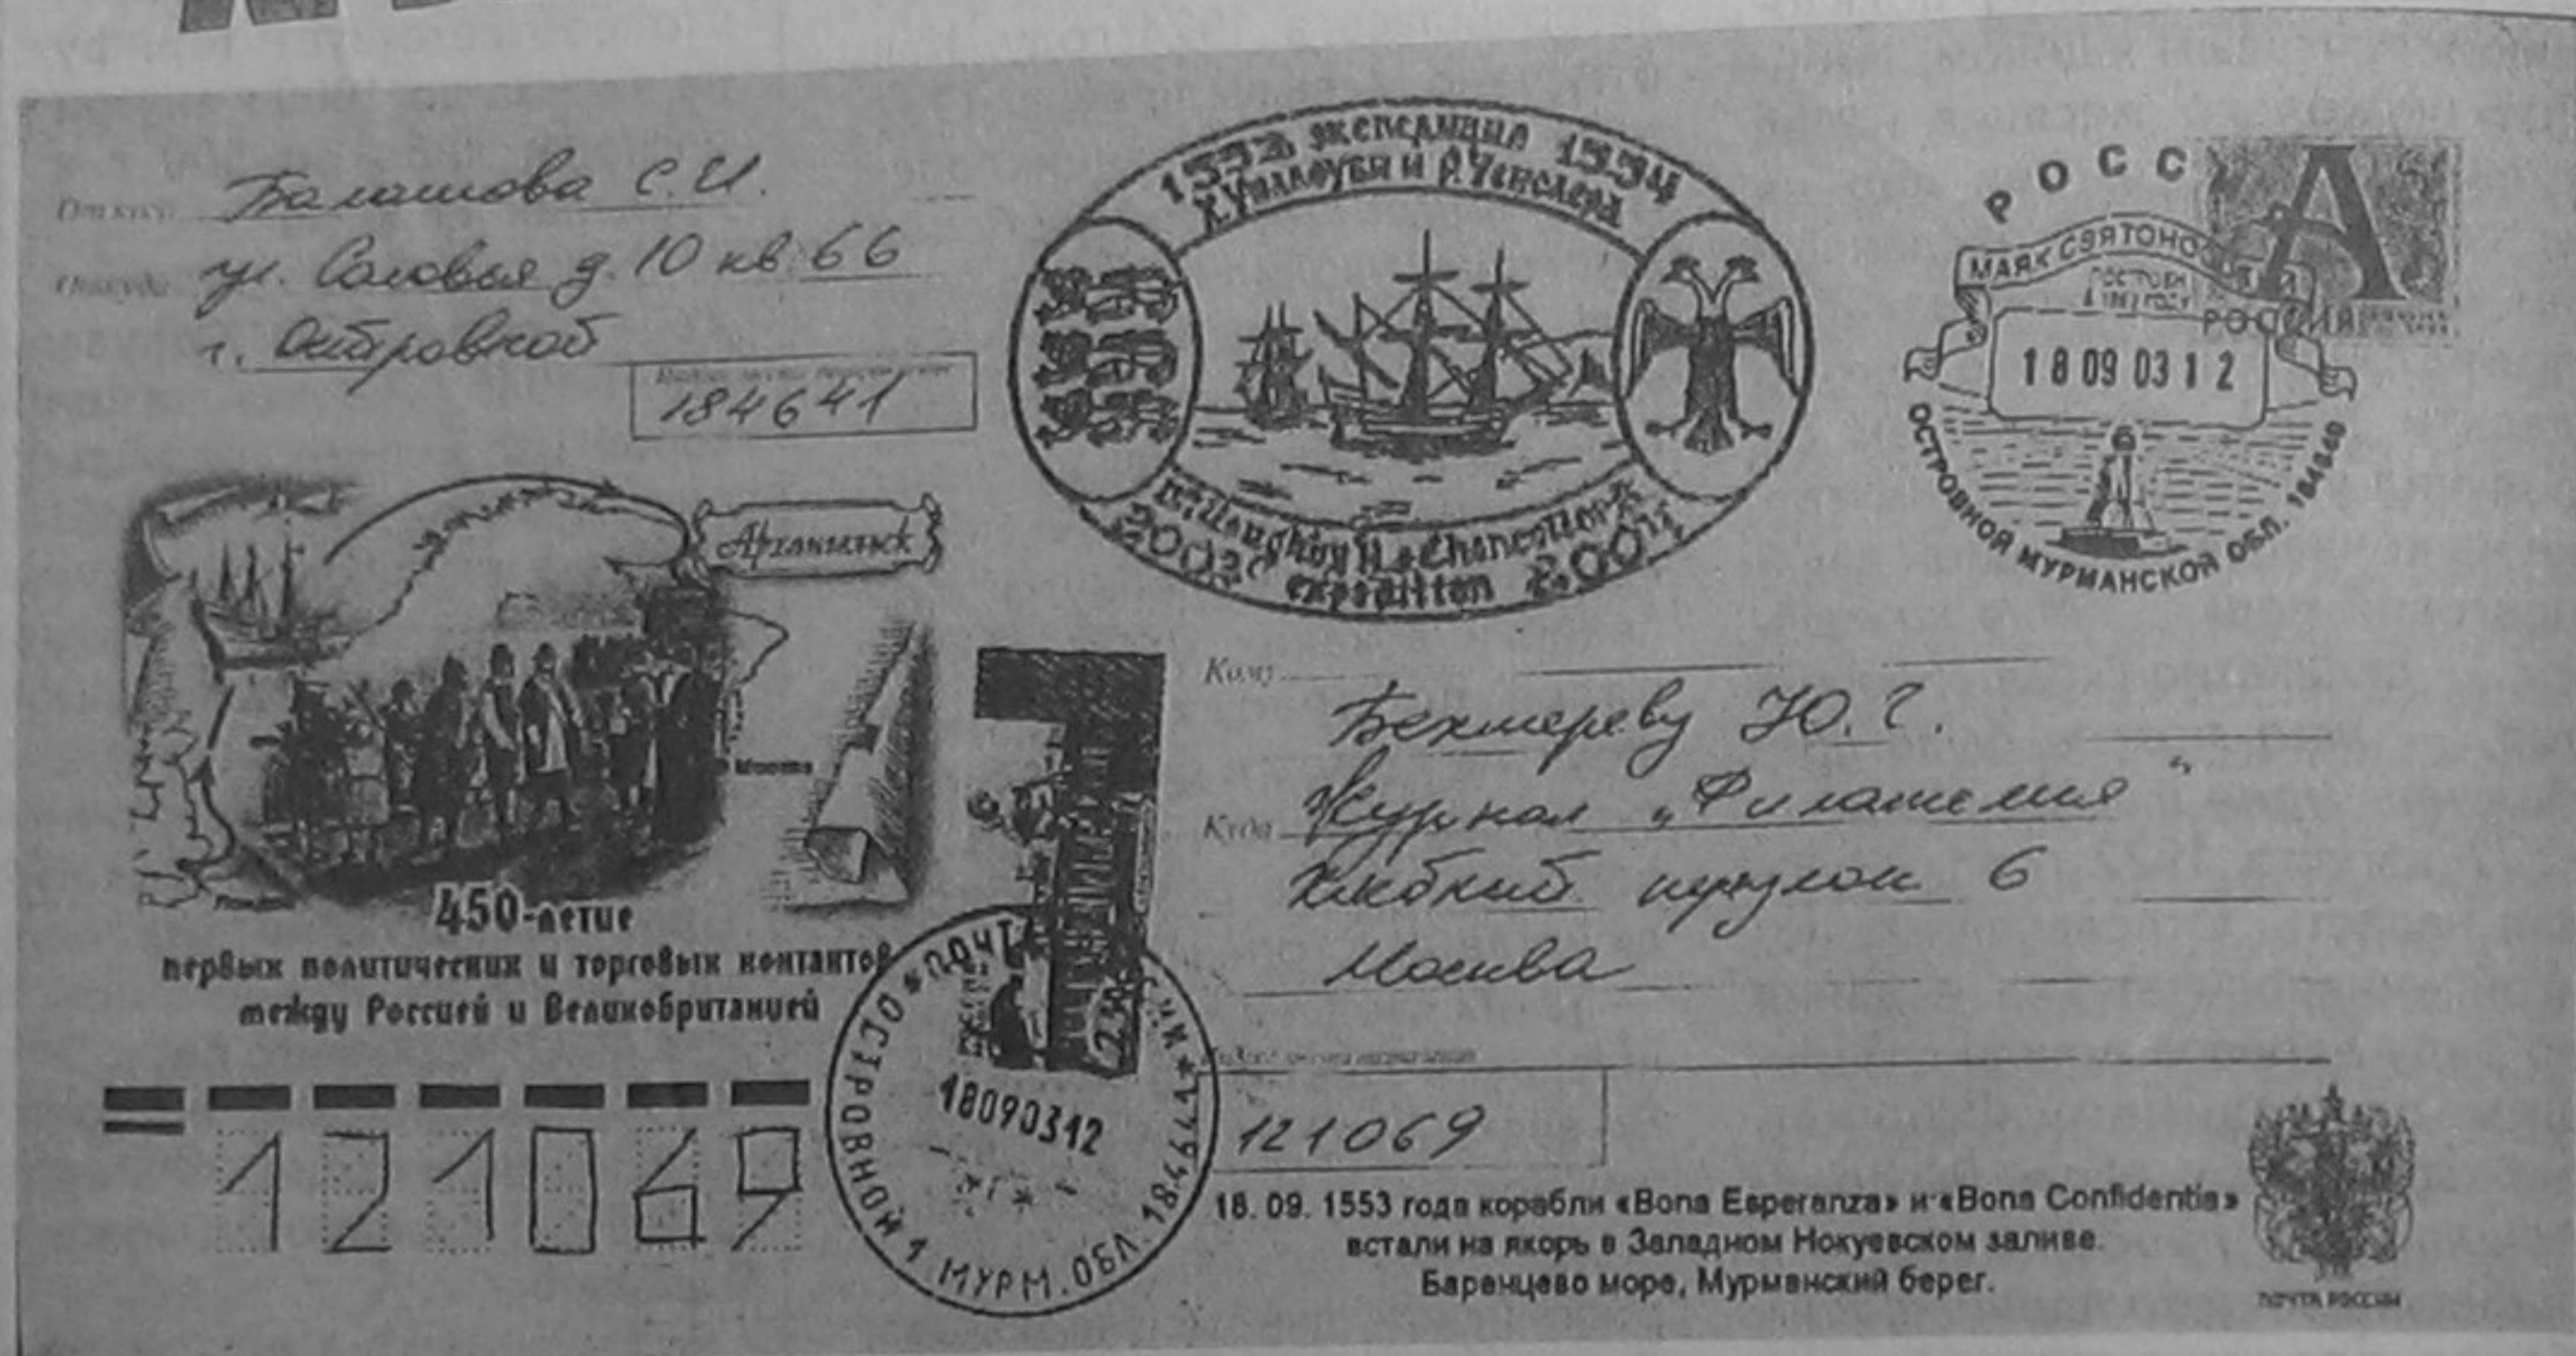 От кого Балашова С.И.
Откуда ул. Соловья д. 10 кв. 66
г. Островной
184641
1553 экспедиция 1554
Х. Уиллоуби и Р. Ченслера
Willoughby H. & Chancellor R.
2003 expedition 2004
РОСС
А
МАЯК СВЯТОНОССКИЙ
ПОСТРОЕН
В 1862 ГОДУ
РОССИЯ
18 09 03 12
ОСТРОВНОЙ МУРМАНСКОЙ ОБЛ. 184640
Архангельск
Москва
450-летие
первых политических и торговых контактов
между Россией и Великобританией
Кому
Бехтереву Ю.Г.
Куда Журнал „Филателия"
Хлебный переулок 6
Москва
121069
121069
ОСТРОВНОЙ 1 МУРМ. ОБЛ. 184641
ПОЧТ
18090312
18. 09. 1553 года корабли «Bona Esperanza» и «Bona Confidentia»
встали на якорь в Западном Нокуевском заливе.
Баренцево море, Мурманский берег.
ПОЧТА РОССИИ